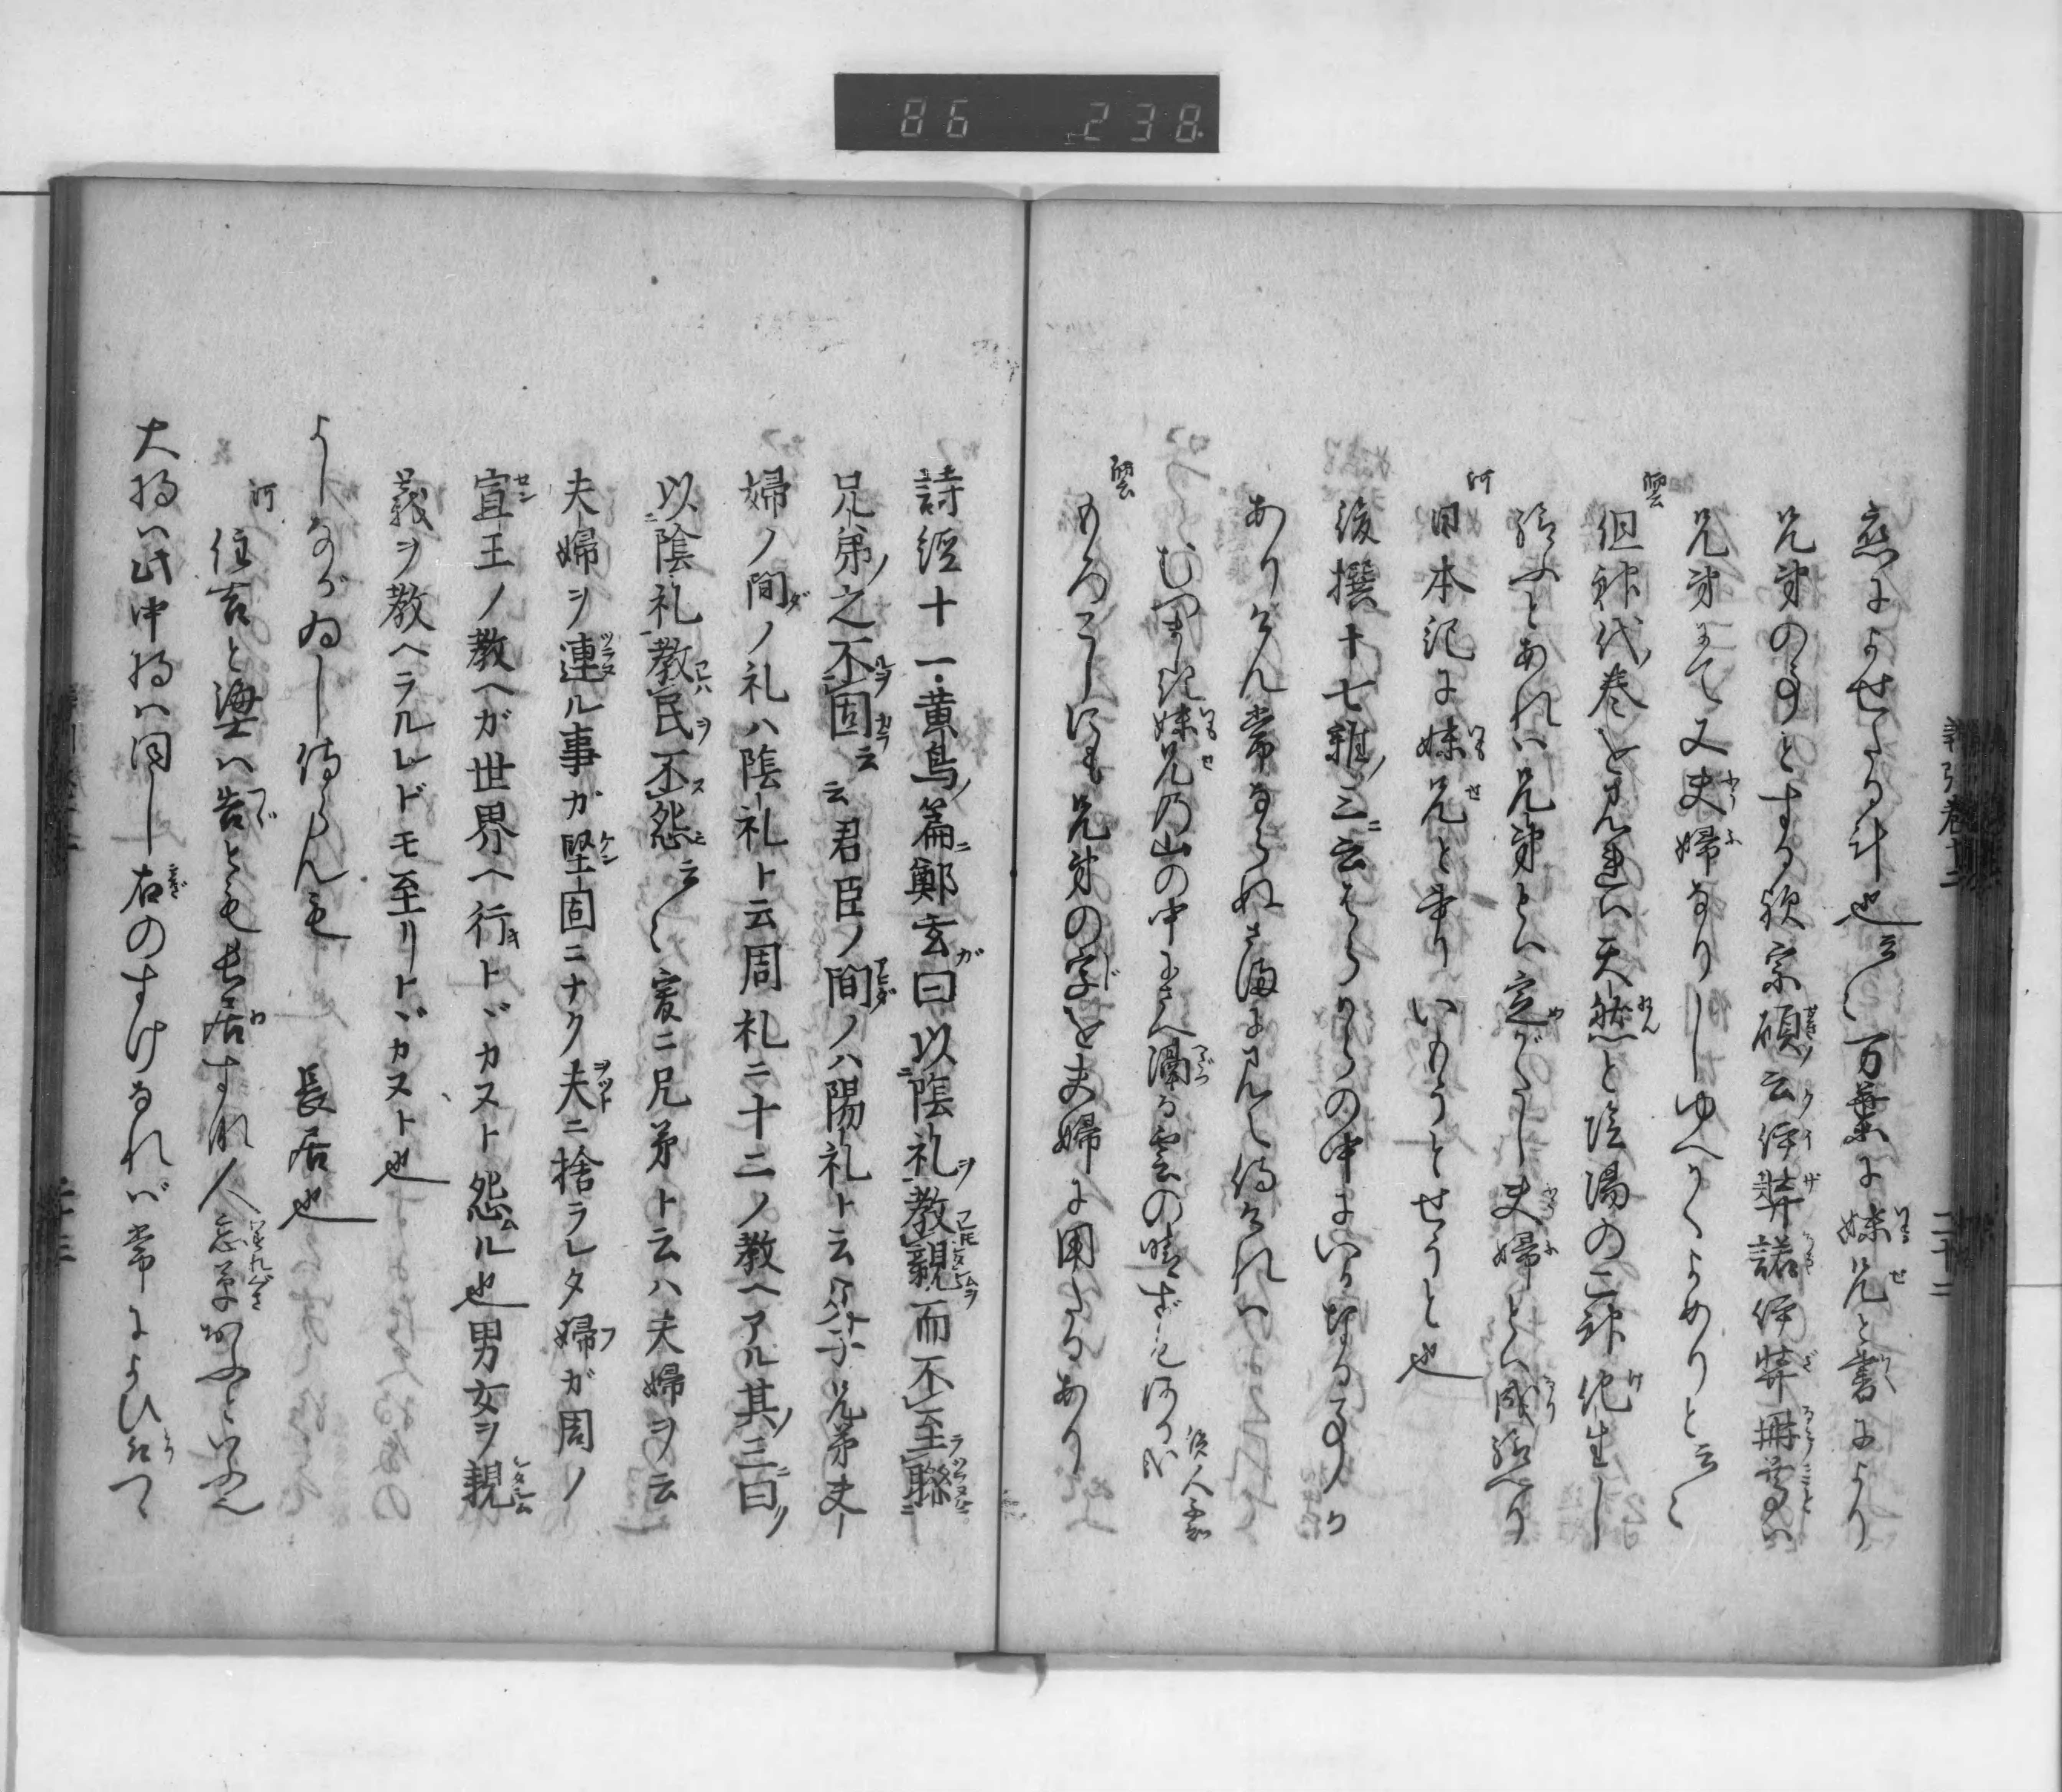 86 238
恋によせたる計也云〻万葉に妹兄と書により
兄弟の事とする歟宗碩云伊弉諾伊弉冊尊ハ
兄弟にて又夫婦なりしゆへかくよめりと云〻
但神代巻を見れハ天然と陰陽の二神化生し
給ふとあれハ兄弟とハ定がたし夫婦とハ成給へり
日本記に妹兄とあり いもうとせうと也
後撰十七雑ノ三ニ云はらからの中にいかなる事か
ありけん常ならぬさまに見え侍けれハ
むつましき妹兄乃山の中にさへ隔る雲の晴ずも有哉 読人不知
もろこしにも兄弟の字を夫婦に用たるあり
詩経十一黄鳥ノ篇ニ鄭玄ガ曰以陰礼ヲ教親而不至聯
兄弟ノ之不固云云君臣ノ間ノハ陽礼ト云父子兄弟夫
婦ノ間ノ礼ハ陰礼ト云周礼ニ十二ノ教ヘアル其ノ三ニ曰
以陰礼教民不怨云〻爰ニ兄弟ト云ハ夫婦ヲ云
夫婦ヲ連ル事ガ堅固ニナク夫ニ捨ラレタ婦ガ周ノ
宣王ノ教ヘガ世界ヘ行トヾカヌト怨ル也男女ヲ親
義ヲ教ヘラルレドモ至リトヾカヌト也
よしなかゐし侍らんも 長居也
住吉と海士ハ告とも長居すな人忘草おふといふ也
大将ハ此中将ハ同し右のすけなれバ常によひとつて